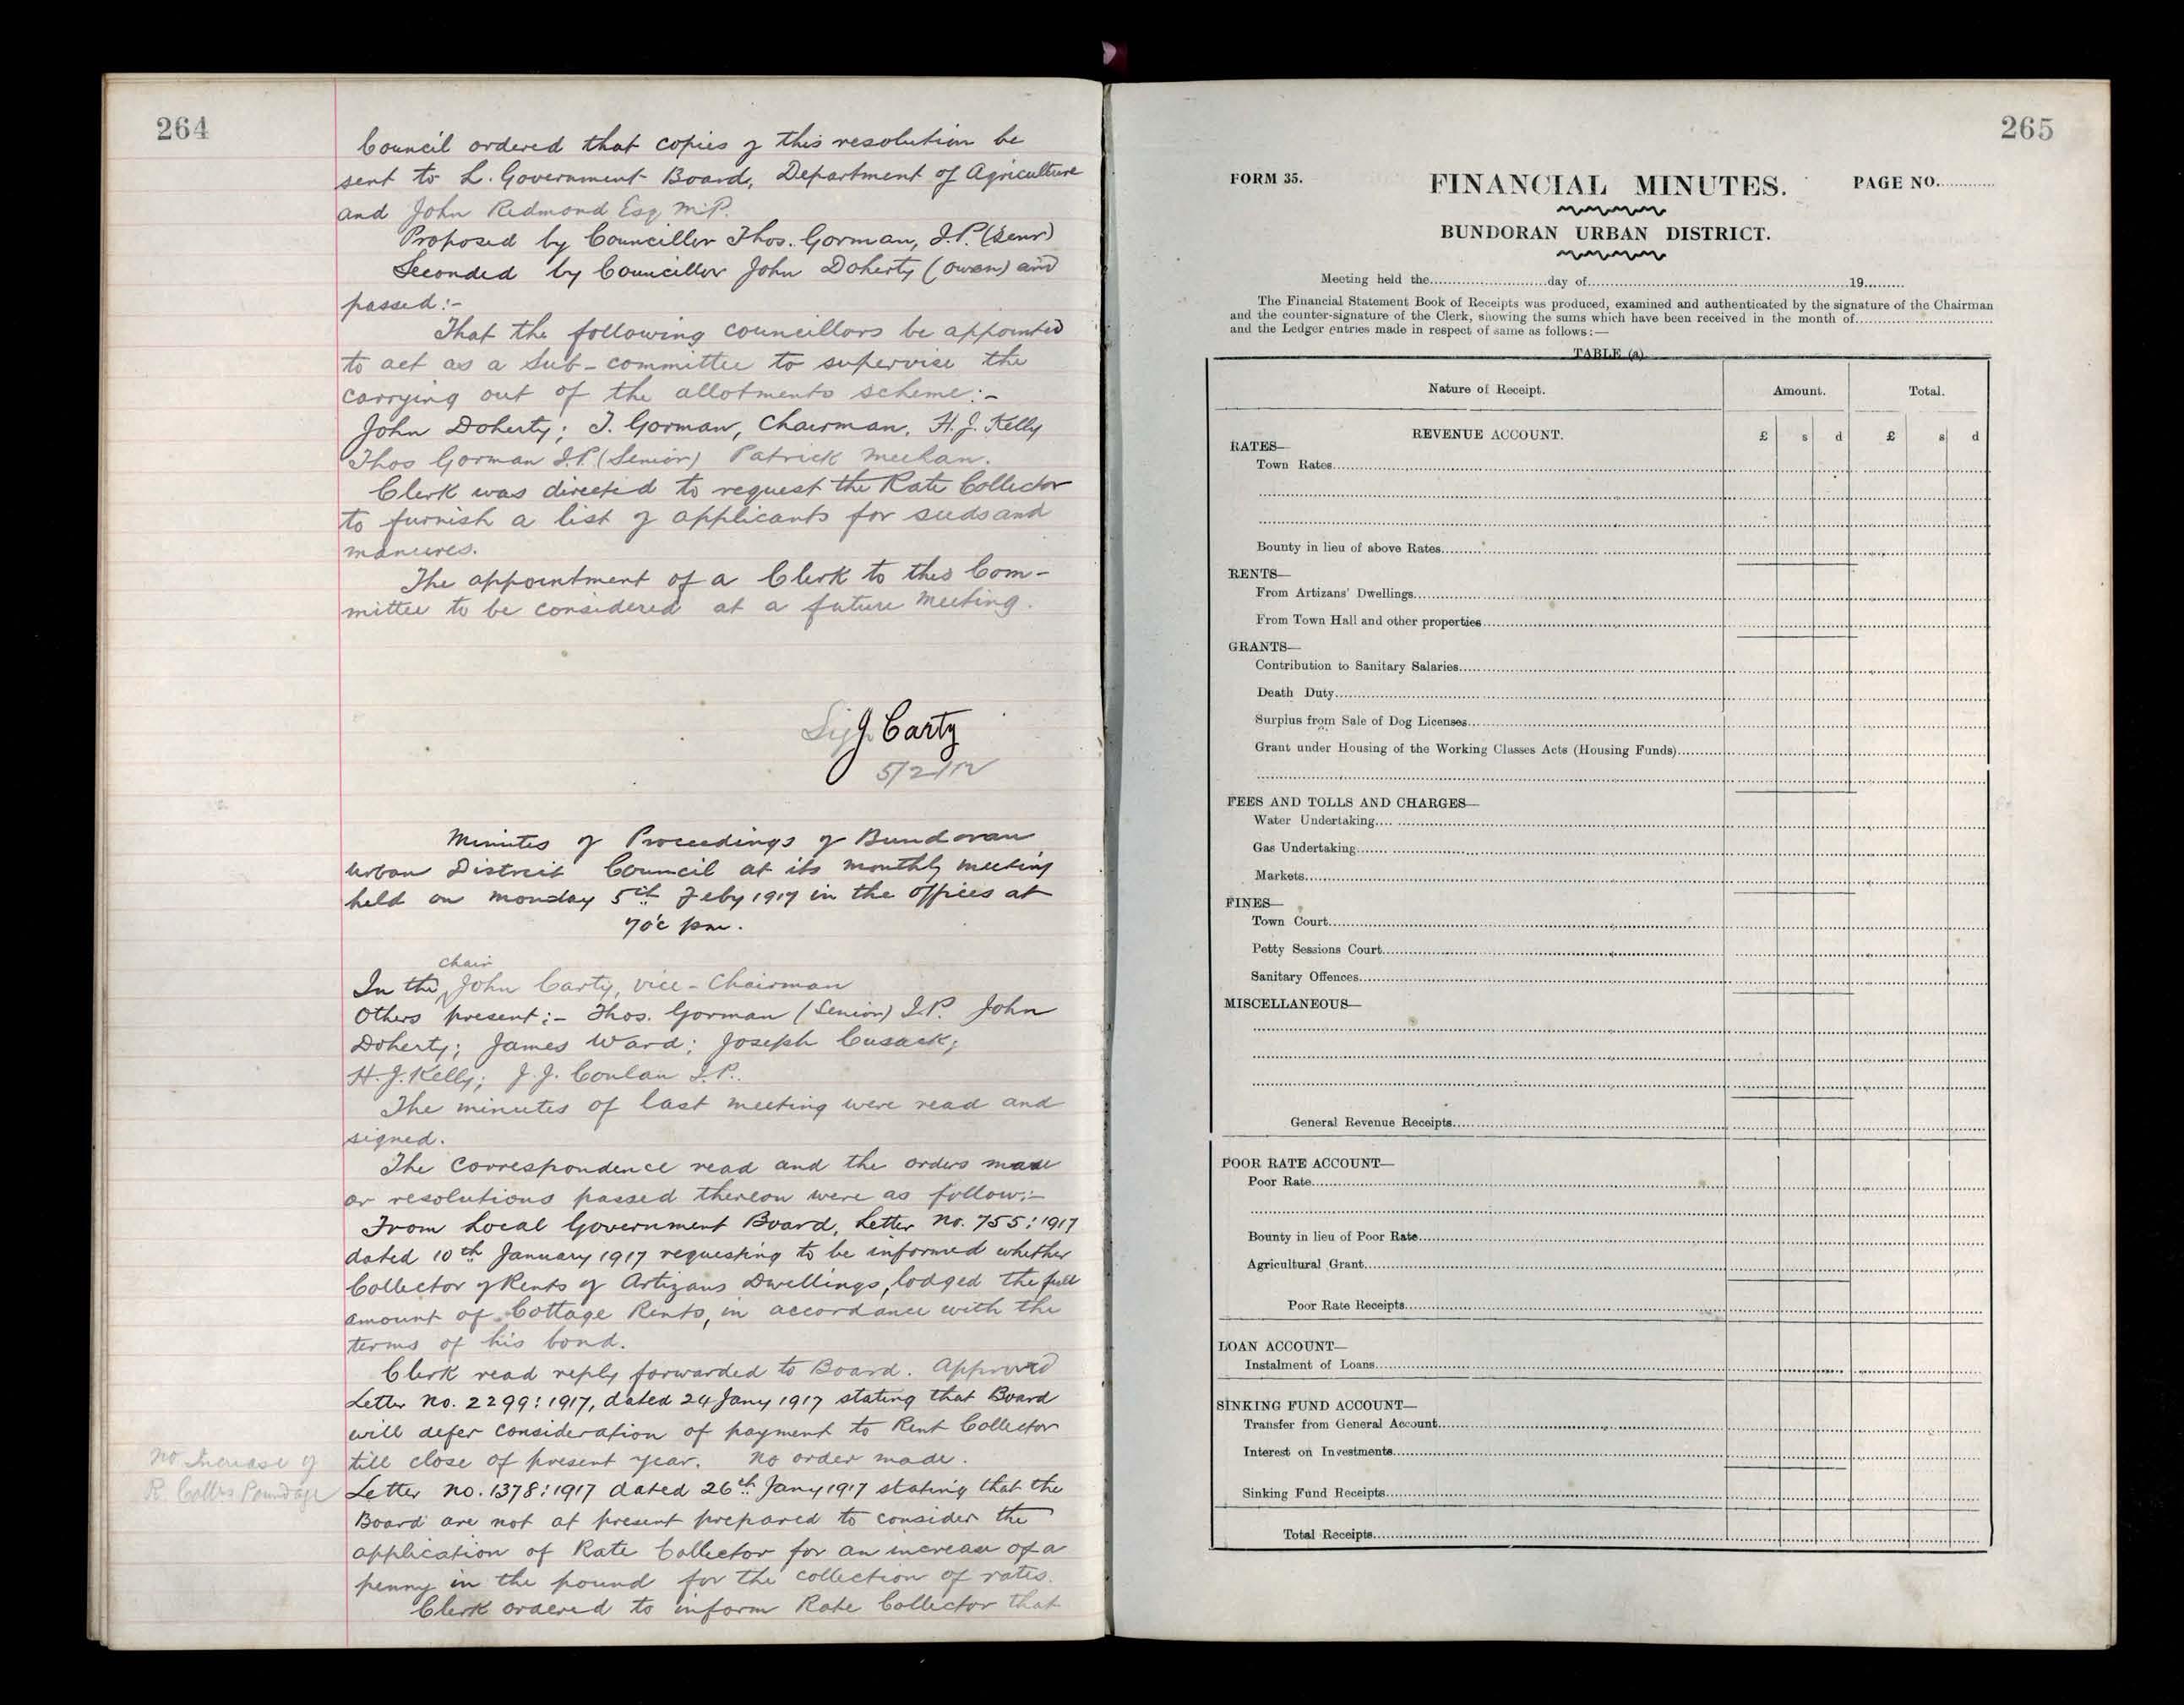 264
Council ordered that copies of this resolution be
sent to L. Government Board, Department of Agriculture
and John Redmond Esq M.P.
Proposed by Councillor Thos. Gorman, J.P. (Senr)
Seconded by Councillor John Doherty (Owen) and
passed:-
That the following councillors be appointed
to act as a Sub-committee to supervise the
carrying out of the allotments scheme:-
John Doherty; T. Gorman, Chairman, H.J. Kelly
Thos Gorman J.P. (Senior) Patrick Meehan.
Clerk was directed to request the Rate Collector
to furnish a list of applicants for seeds and
manures.
The appointment of a Clerk to this Com-
mittee to be considered at a future meeting.
J Carty
5/2/17
Minutes of Proceedings of Bundoran
Urban District Council at its monthly meeting
held on Monday 5th Feby 1917 in the offices at
7 o'c pm.
chair
In the John Carty, vice-Chairman
Others present:- Thos. Gorman (Senior) J.P. John
Doherty; James Ward; Joseph Cusack;
H.J. Kelly; J.J. Conlan J.P.
The minutes of last meeting were read and
signed.
The correspondence read and the orders made
or resolutions passed thereon were as follow:-
From Local Government Board, Letter No. 755:1917
dated 10th January 1917 requesting to be informed whether
Collector of Rents of Artizans Dwellings, lodged the full
amount of Cottage Rents, in accordance with the
terms of his bond.
Clerk read reply forwarded to Board. Approved
Letter No. 2299:1917, dated 24 Jany 1917 stating that Board
will defer consideration of payment to Rent Collector
till close of present year. No order made.
No Increase of
R. Collrs Poundage
Letter No. 1378:1917 dated 26th Jany 1917 stating that the
Board are not at present prepared to consider the
application of Rate Collector for an increase of a
penny in the pound for the collection of rates.
Clerk ordered to inform Rate Collector that
265
FORM 35. FINANCIAL MINUTES. PAGE NO............
BUNDORAN URBAN DISTRICT.
Meeting held the..........................day of..........................19.........
The Financial Statement Book of Receipts was produced, examined and authenticated by the signature of the Chairman
and the counter-signature of the Clerk, showing the sums which have been received in the month of..........................
and the Ledger entries made in respect of same as follows:—
TABLE (a)
Nature of Receipt. Amount. Total.
REVENUE ACCOUNT. £ s d £ s d
RATES—
Town Rates
Bounty in lieu of above Rates
RENTS—
From Artizans' Dwellings
From Town Hall and other properties
GRANTS—
Contribution to Sanitary Salaries
Death Duty
Surplus from Sale of Dog Licenses
Grant under Housing of the Working Classes Acts (Housing Funds)
FEES AND TOLLS AND CHARGES—
Water Undertaking
Gas Undertaking
Markets
FINES—
Town Court
Petty Sessions Court
Sanitary Offences
MISCELLANEOUS—
General Revenue Receipts
POOR RATE ACCOUNT—
Poor Rate
Bounty in lieu of Poor Rate
Agricultural Grant
Poor Rate Receipts
LOAN ACCOUNT—
Instalment of Loans
SINKING FUND ACCOUNT—
Transfer from General Account
Interest on Investments
Sinking Fund Receipts
Total Receipts